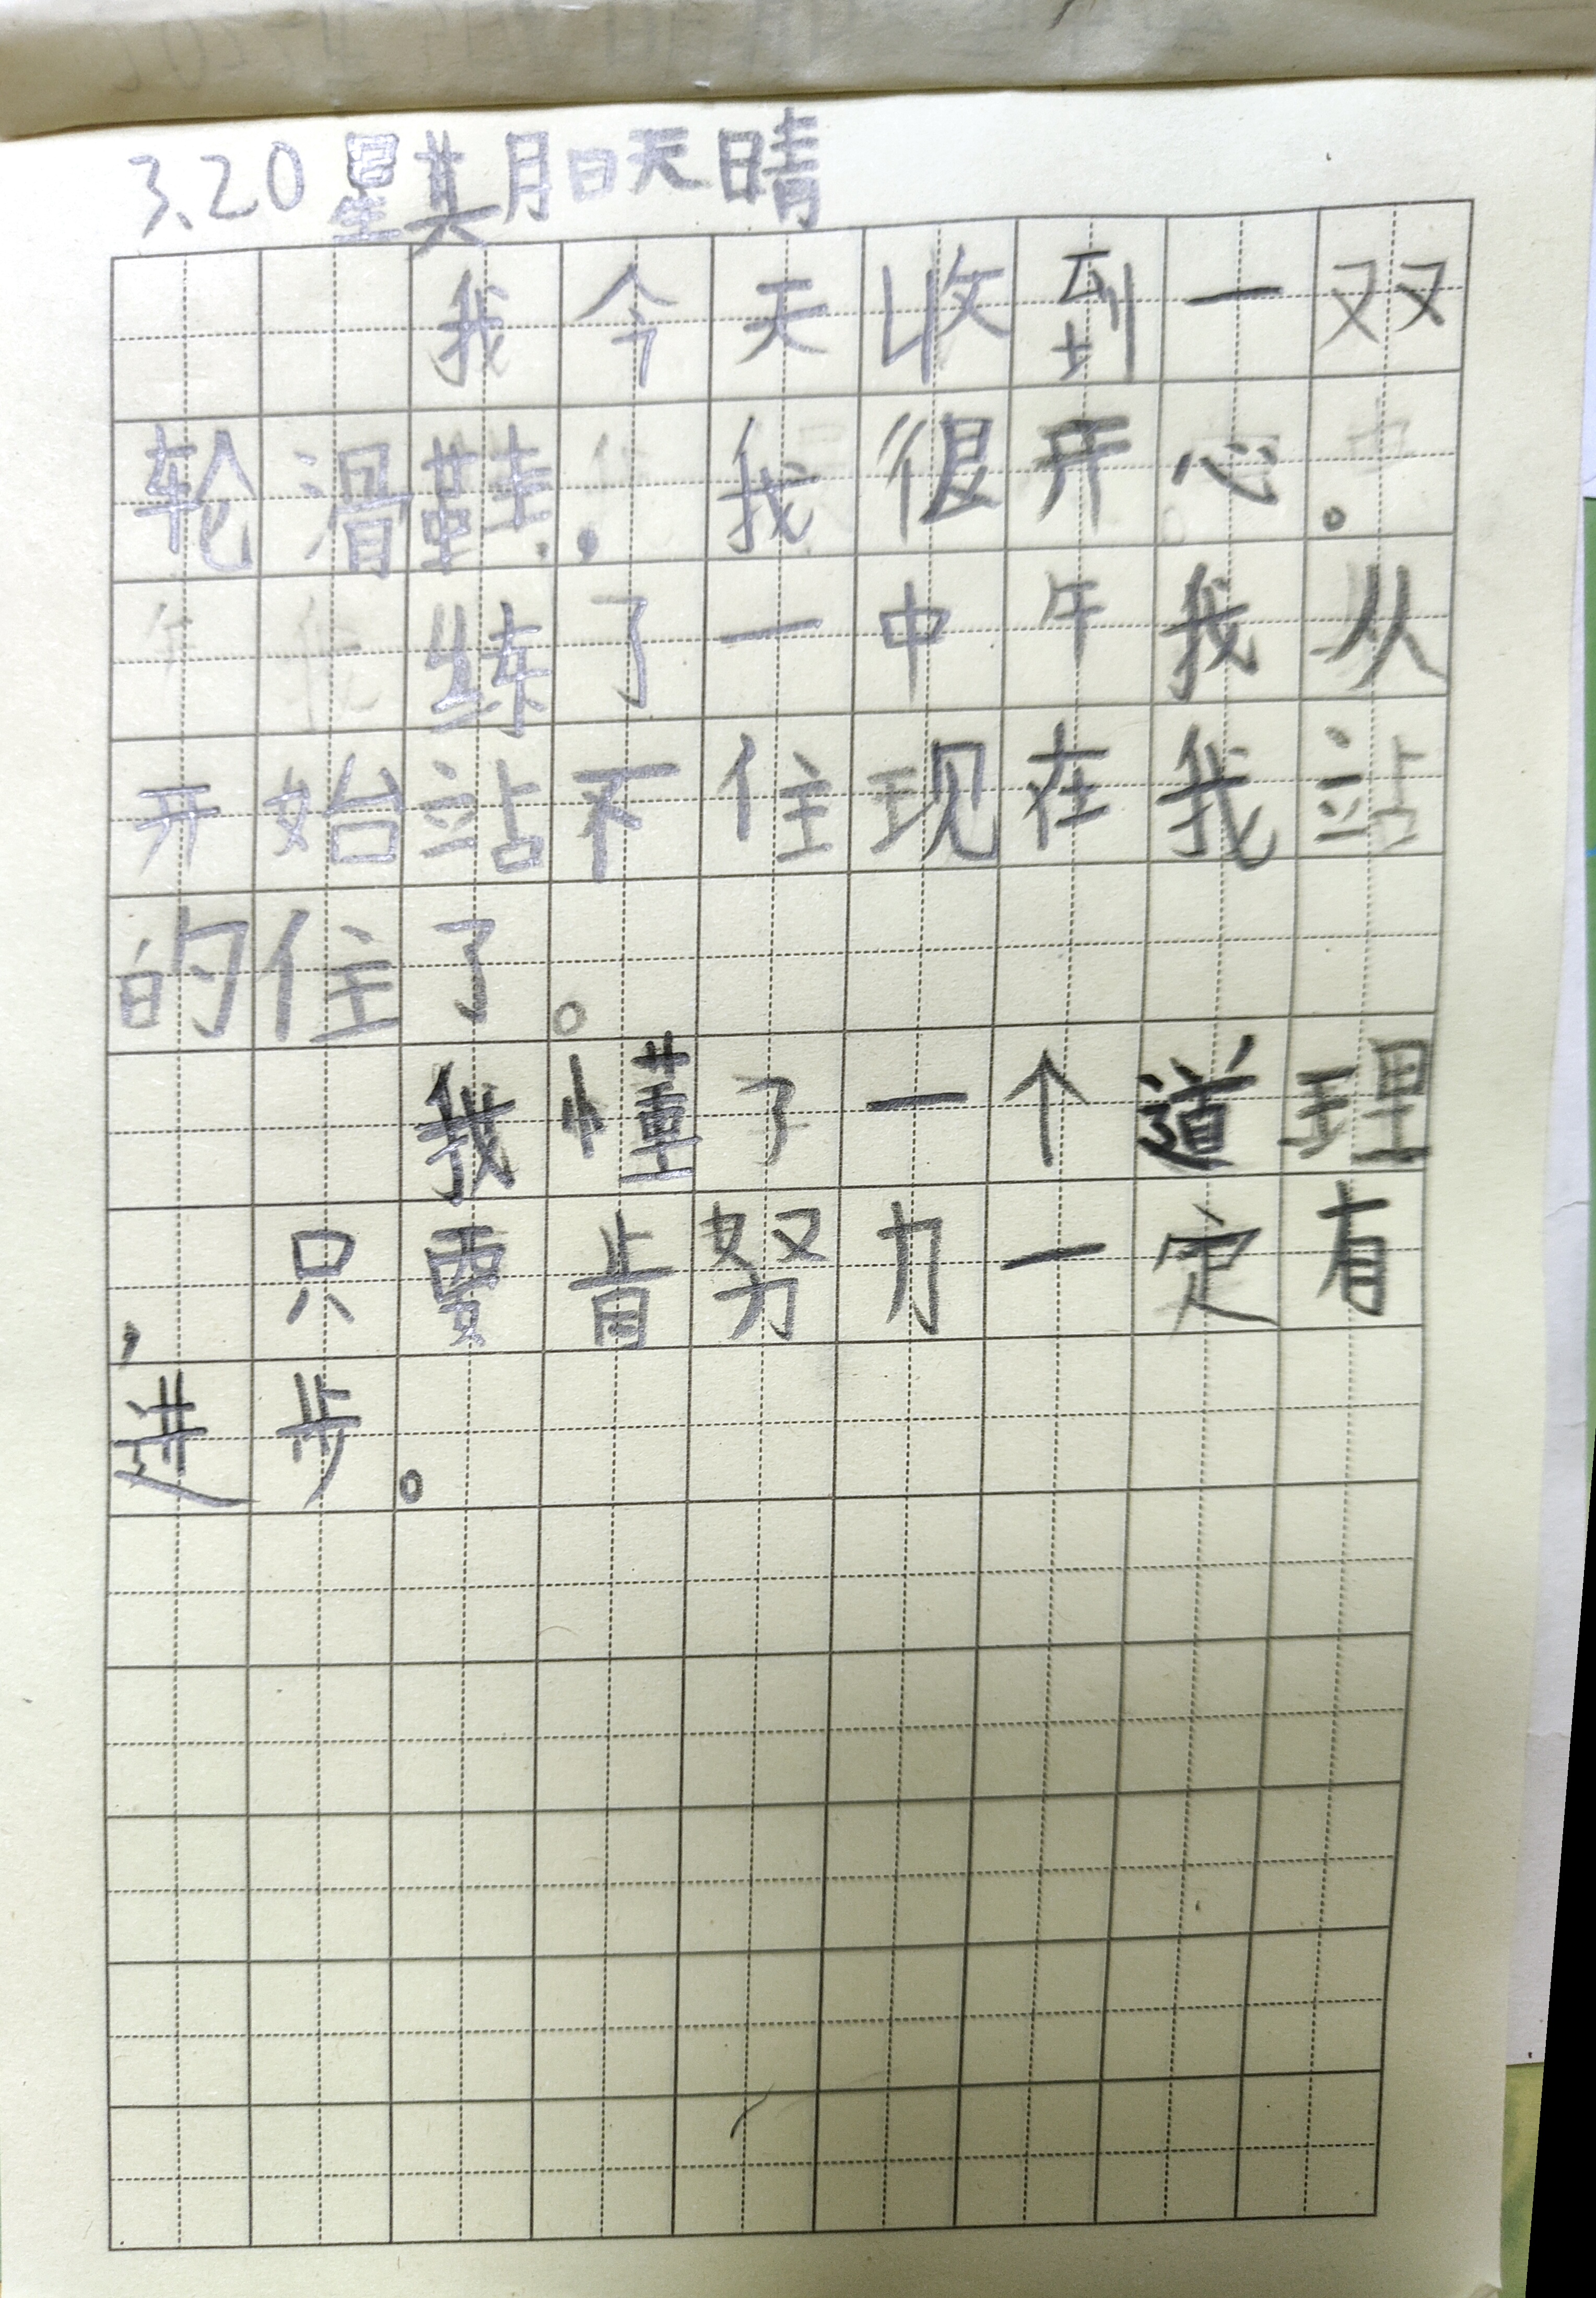 3.20 星期日天晴
我今天收到一双
轮滑鞋，我很开心。
练了一中午我从
开始站不住现在我站
的住了。
我懂了一个道理
，只要肯努力一定有
进步。